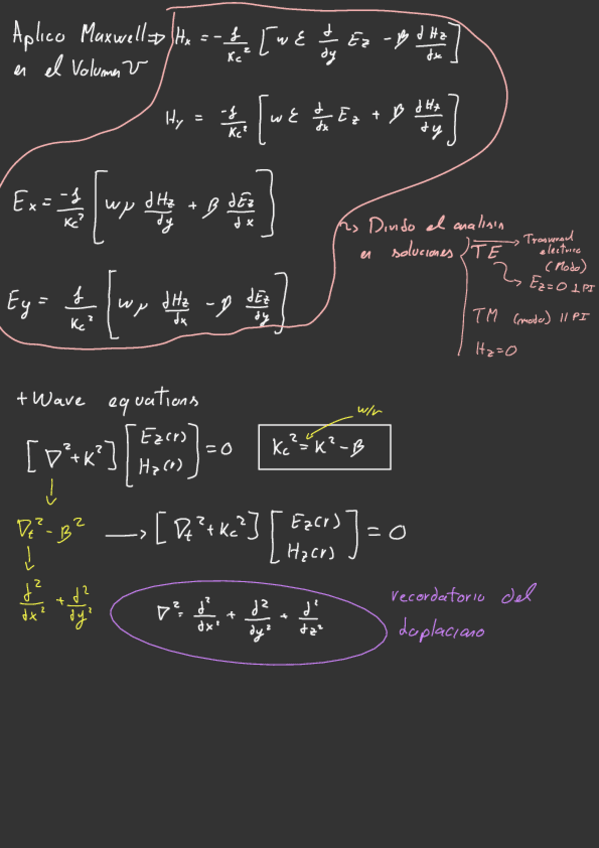 Aplico Maxwell ⇒ Hx = -j/Kc² [ w ε d/dy Ez - β dHz/dx ]
en el Volumen V
Hy = -j/Kc² [ w ε d/dx Ez + β dHz/dy ]
Ex = -j/Kc² [ w μ dHz/dy + β dEz/dx ]
Ey = j/Kc² [ w μ dHz/dx - β dEz/dy ]
Divido el analisis
en soluciones
TE → Transversal
electrico
(Modo)
Ez=0 ⊥ PI
TM (modo) // PI
Hz=0
+ Wave equations
[∇² + K²] [ Ez(r) Hz(r) ] = 0
w/v
Kc² = K² - β
∇t² - β² → [∇t² + Kc²] [ Ez(r) Hz(r) ] = 0
d²/dx² + d²/dy²
∇² = d²/dx² + d²/dy² + d²/dz²
recordatorio del
Laplaciano